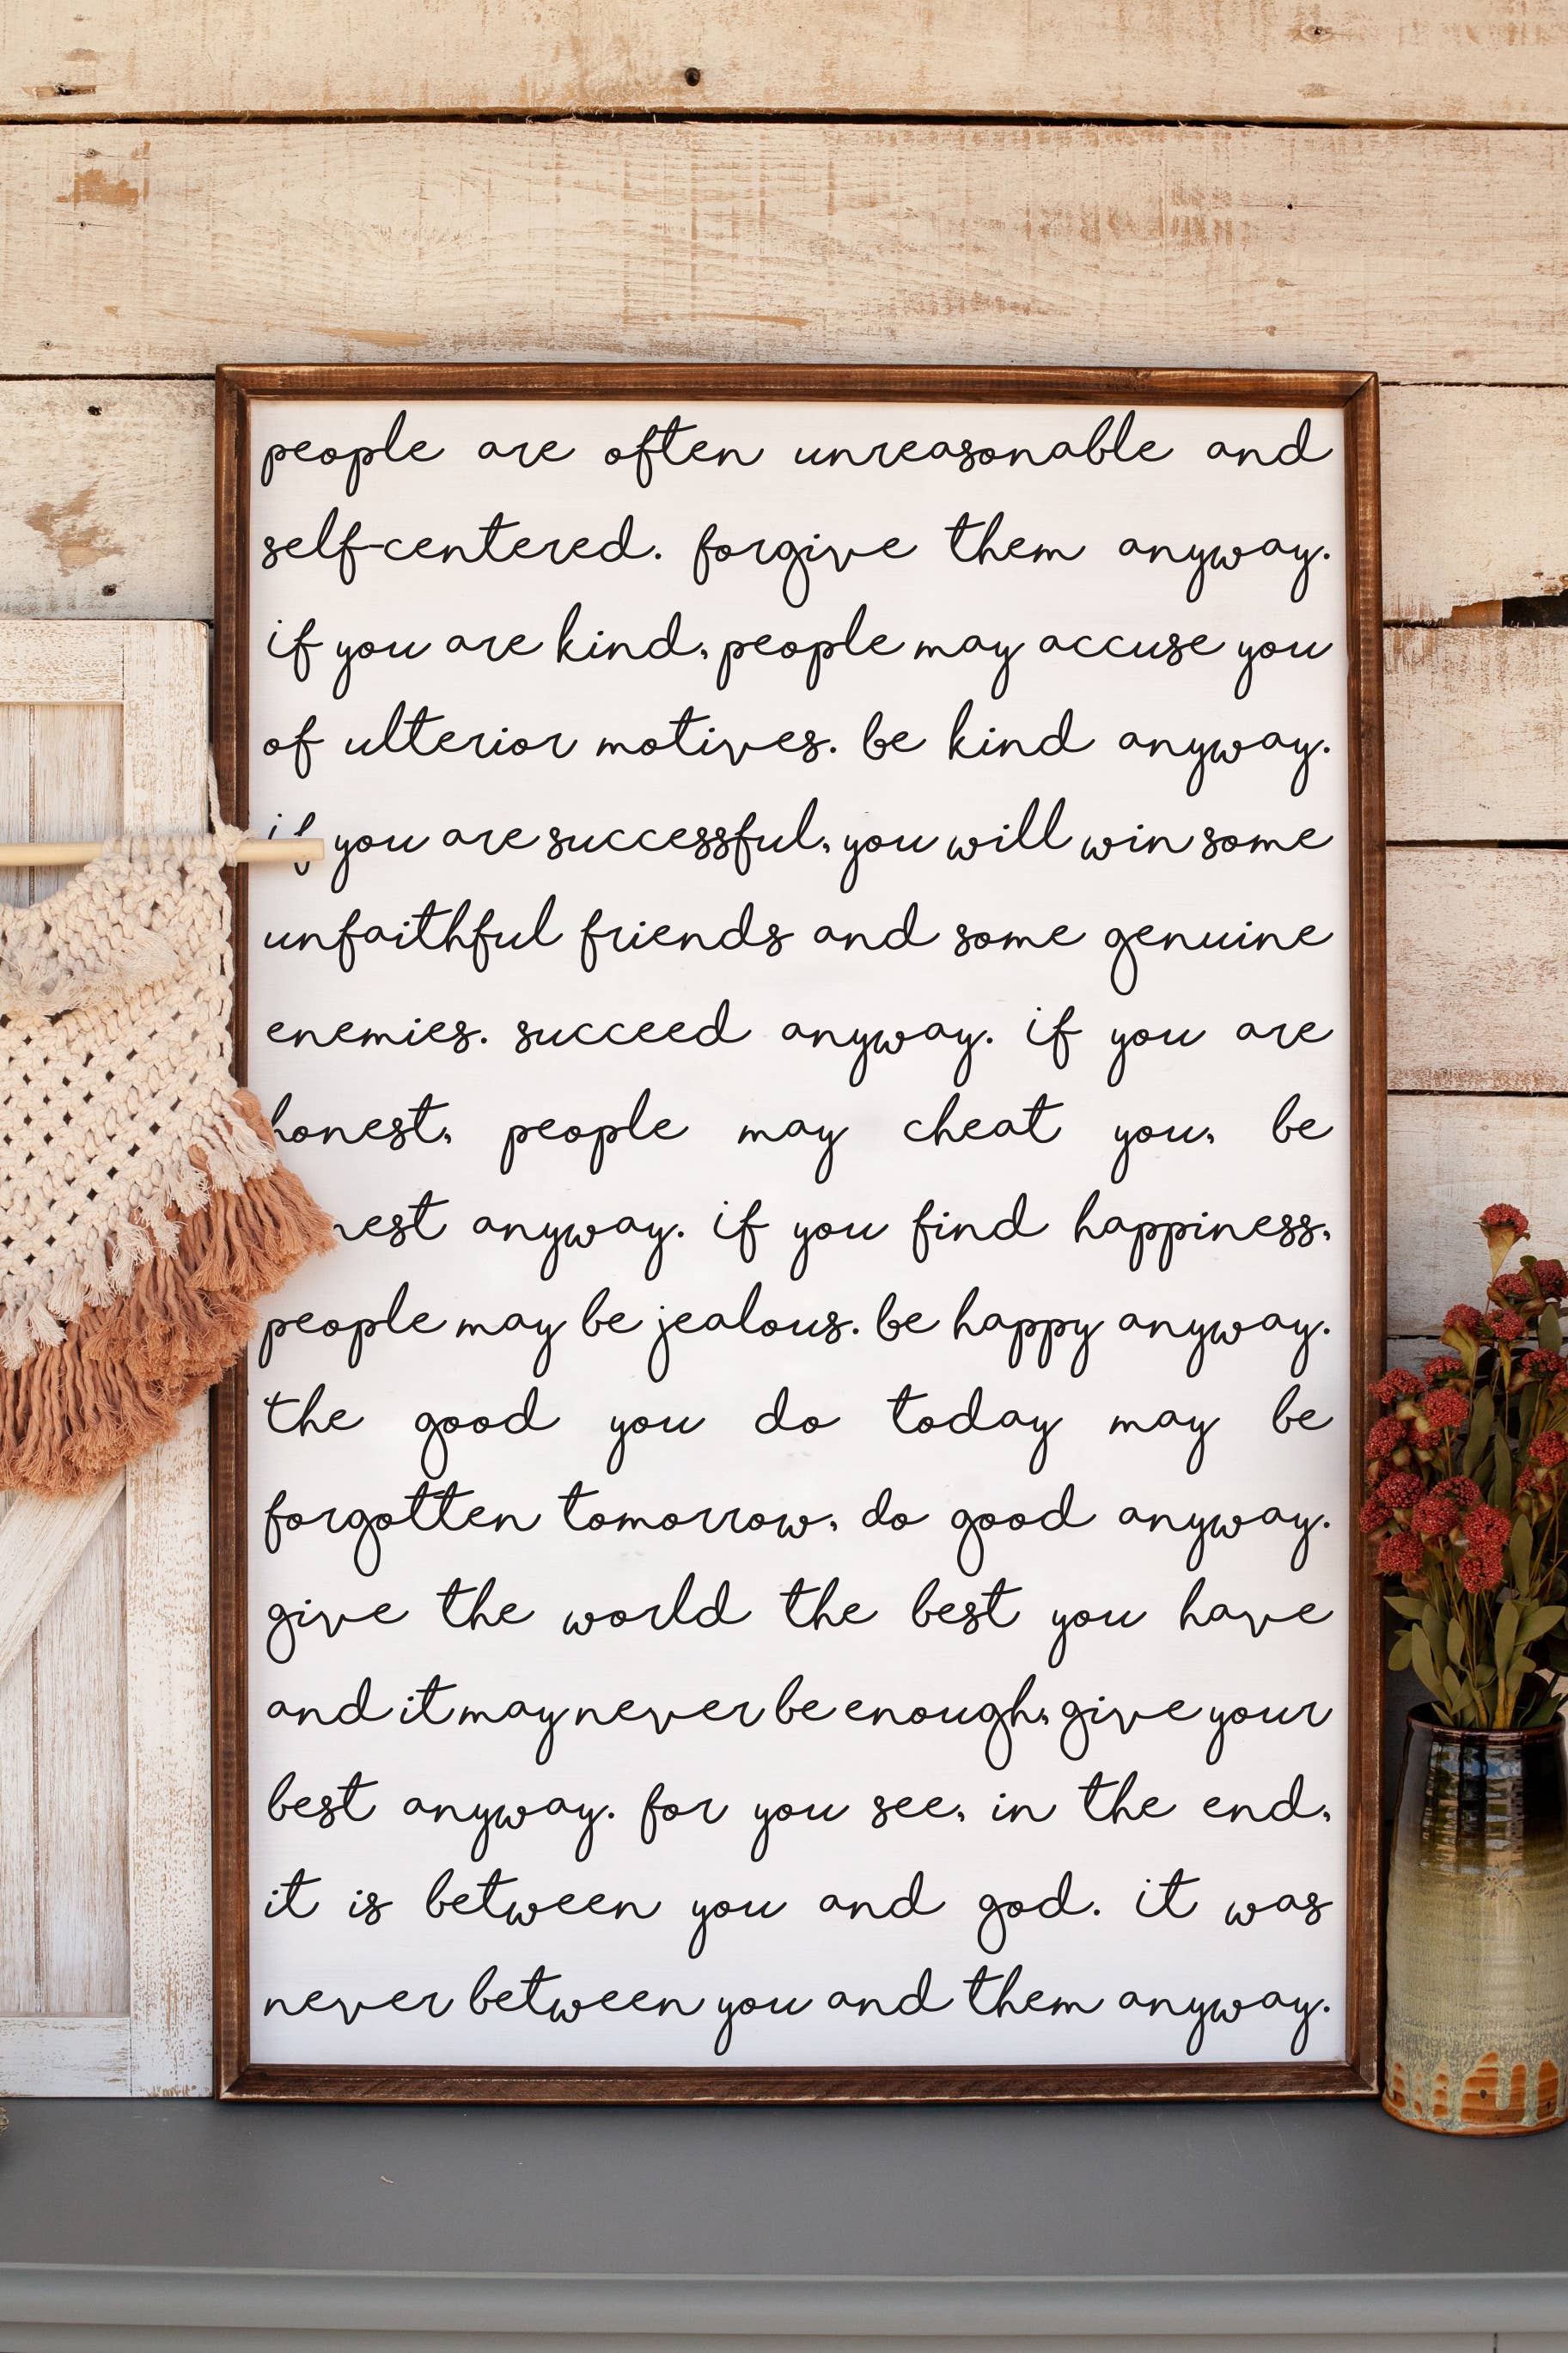 people are often unreasonable and
self-centered. forgive them anyway.
if you are kind, people may accuse you
of ulterior motives. be kind anyway.
if you are successful, you will win some
unfaithful friends and some genuine
enemies. succeed anyway. if you are
honest, people may cheat you, be
nest anyway. if you find happiness,
people may be jealous. be happy anyway.
the good you do today may be
forgotten tomorrow, do good anyway.
give the world the best you have
and it may never be enough, give your
best anyway. for you see, in the end,
it is between you and god. it was
never between you and them anyway.